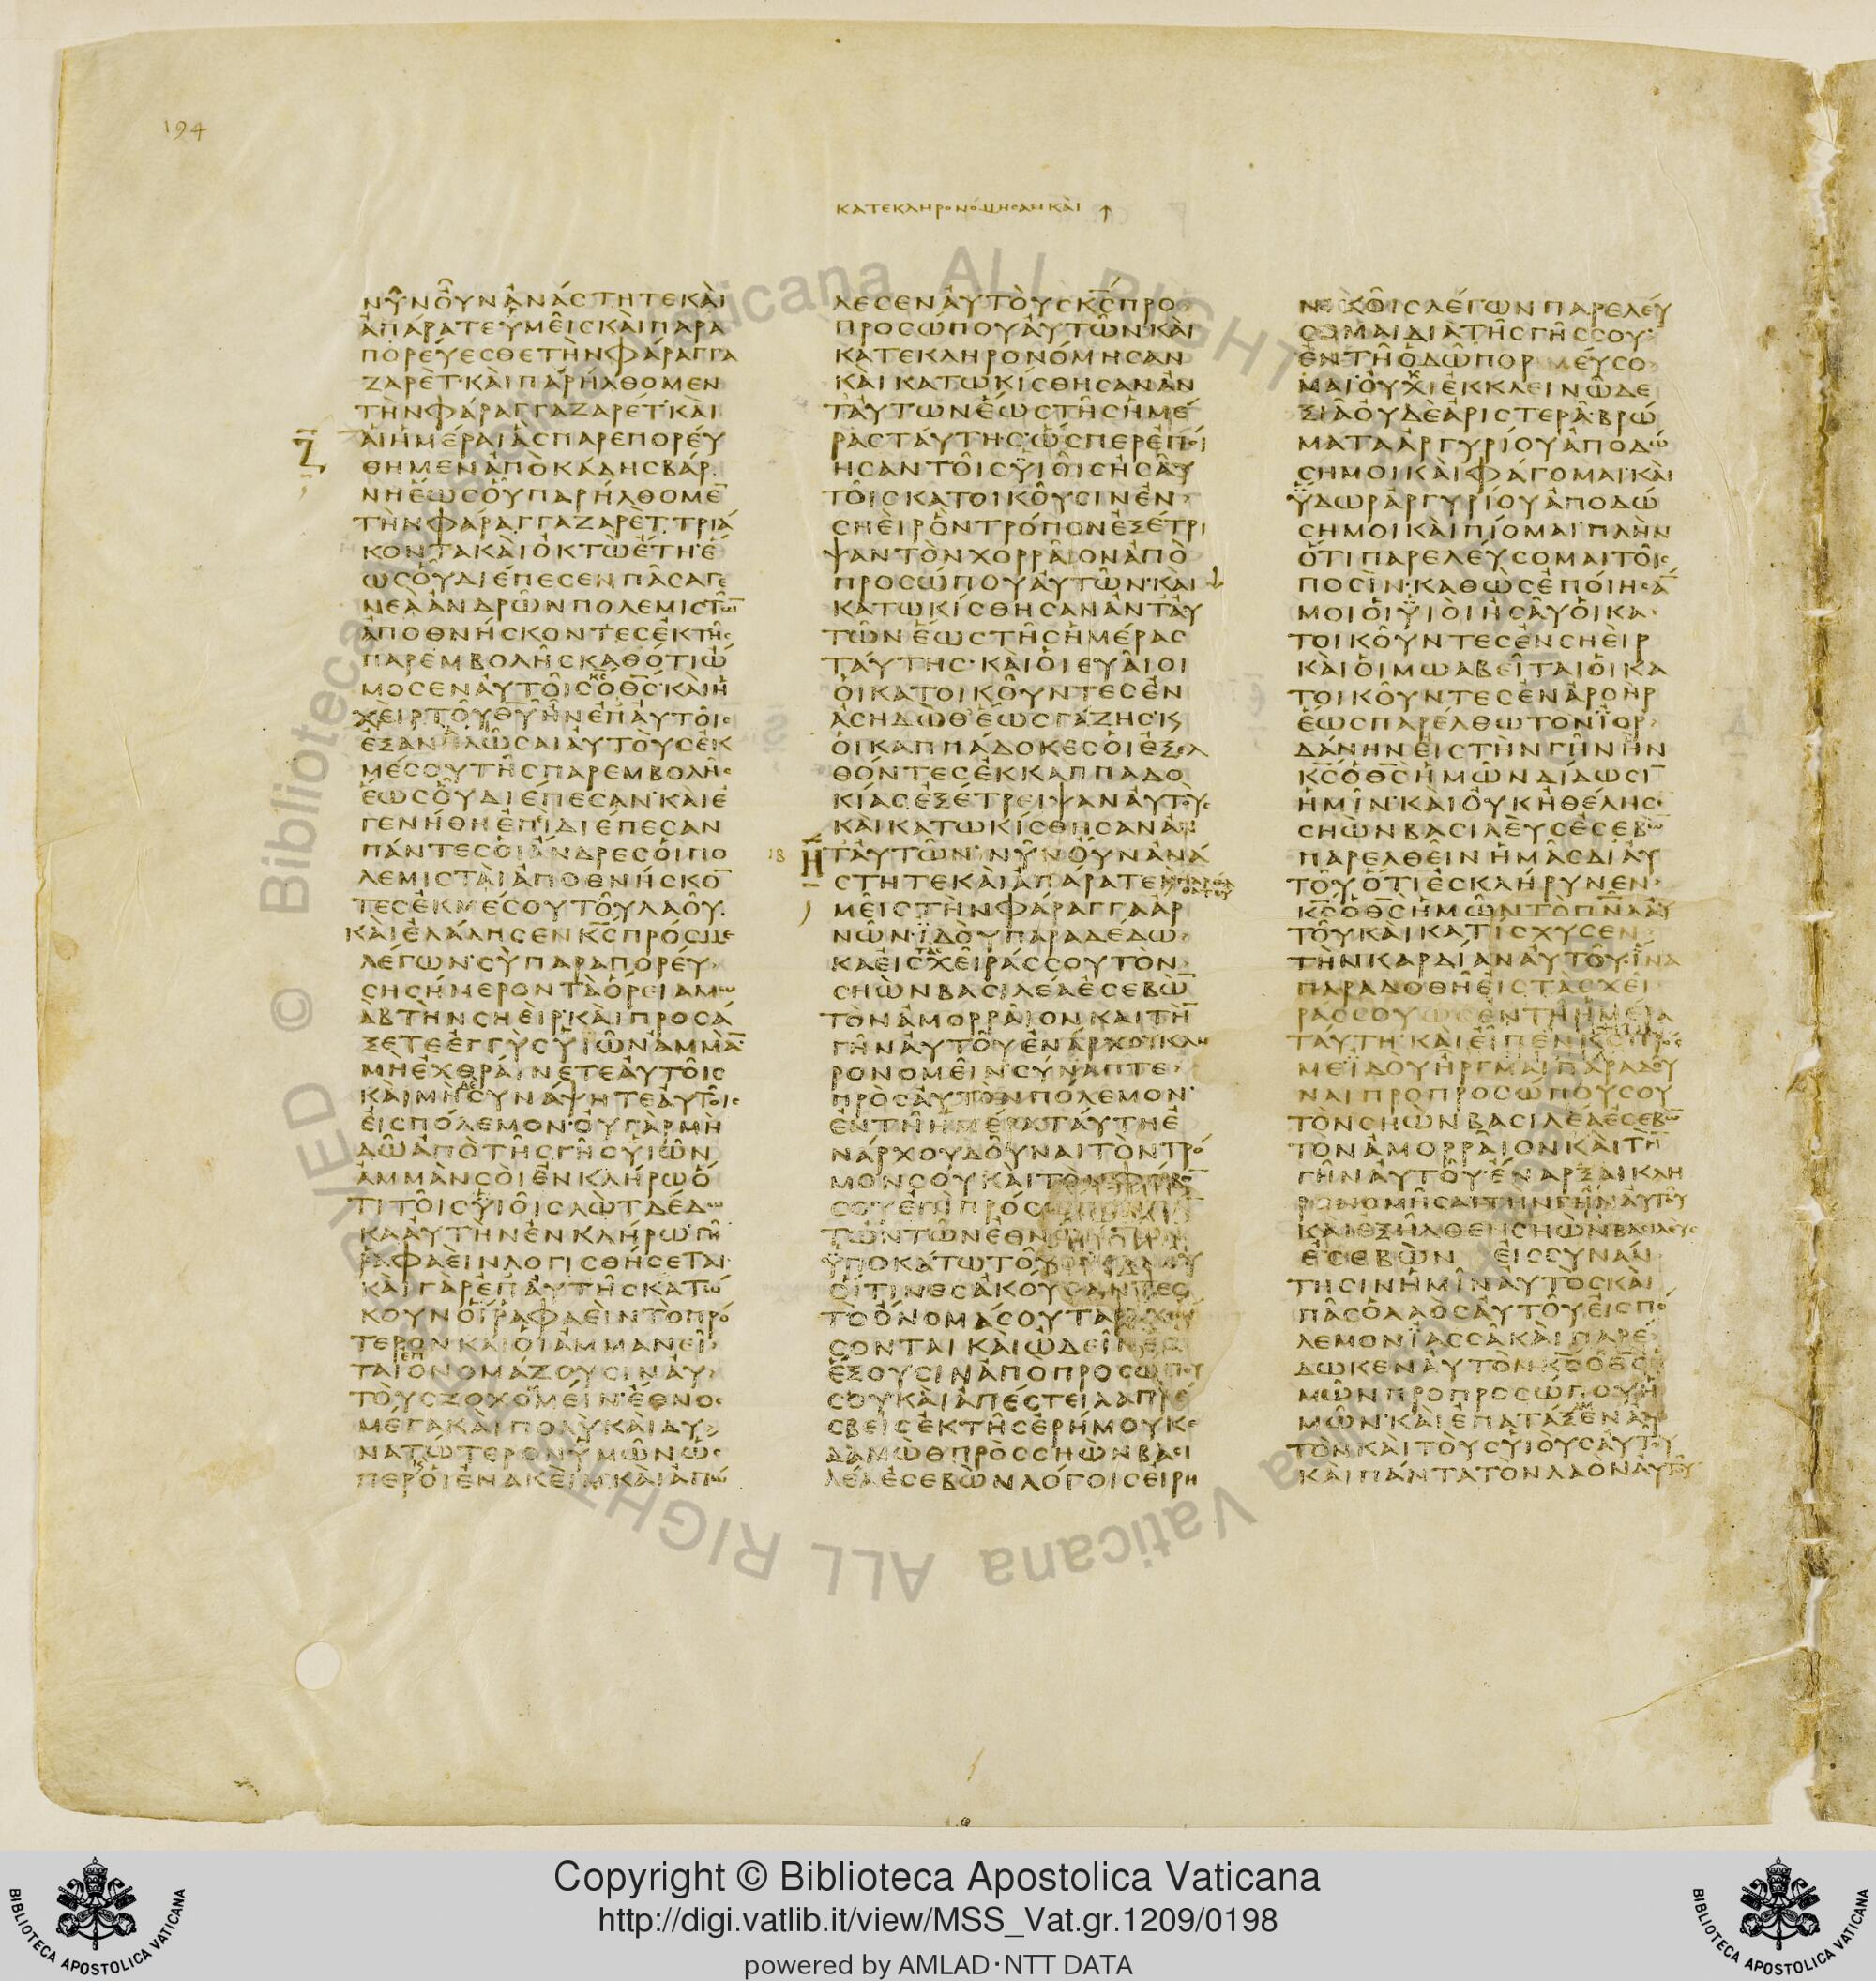 194
ΚΑΤΕΚΛΗΡΟΝΟΜΗСΑΝ ΚΑΙ
ΝΥΝΟΥΝΑΝΑСΤΗΤΕΚΑΙ
ΑΠΑΡΑΤΕΥΜΕΙСΚΑΙΠΑΡΑ
ΠΟΡΕΥΕСΘΕΤΗΝΦΑΡΑΓΓΑ
ΖΑΡΕΤ·ΚΑΙΠΑΡΗΛΘΟΜΕΝ
ΤΗΝΦΑΡΑΓΓΑΖΑΡΕΤ·ΚΑΙ
Ζ
ΑΙΗΜΕΡΑΙΑСΠΑΡΕΠΟΡΕΥ
ΘΗΜΕΝΑΠΟΚΑΔΗСΒΑΡ
ΝΗΕΩСΟΥΠΑΡΗΛΘΟΜΕ̅
ΤΗΝΦΑΡΑΓΓΑΖΑΡΕΤ·ΤΡΙΑ
ΚΟΝΤΑΚΑΙΟΚΤΩΕΤΗ·Ε
ΩСΟΥΔΙΕΠΕСΕΝΠΑСΑΓΕ
ΝΕΑΑΝΔΡΩΝΠΟΛΕΜΙСΤΩ̅
ΑΠΟΘΝΗСΚΟΝΤΕСΕΚΤΗС
ΠΑΡΕΜΒΟΛΗСΚΑΘΟΤΙΩ
ΜΟСΕΝΑΥΤΟΙСΟΘ̅С̅·ΚΑΙΗ
ΧΕΙΡΤΟΥΘ̅Υ̅ΗΝΕΠΑΥΤΟΙС
ΕΞΑΝΑΛΩСΑΙΑΥΤΟΥСΕΚ
ΜΕСΟΥΤΗСΠΑΡΕΜΒΟΛΗС
ΕΩСΟΥΔΙΕΠΕСΑΝ·ΚΑΙΕ
ΓΕΝΗΘΗΕΠΙΔΙΕΠΕСΑΝ
ΠΑΝΤΕСΟΙΑΝΔΡΕСΟΙΠΟ
ΛΕΜΙСΤΑΙΑΠΟΘΝΗСΚΟ̅
ΤΕСΕΚΜΕСΟΥΤΟΥΛΑΟΥ·
ΚΑΙΕΛΑΛΗСΕΝΚ̅С̅ΠΡΟСΜΕ
ΛΕΓΩΝ·СΥΠΑΡΑΠΟΡΕΥ
СΗСΗΜΕΡΟΝΤΑΟΡΕΙΑΜΩ
ΑΒΤΗΝСΗΕΙΡ·ΚΑΙΠΡΟСΑ
ΞΕΤΕΕΓΓΥСΥΙΩΝΑΜΜΑ̅·
ΜΗΕΧΘΡΑΙΝΕΤΕΑΥΤΟΙС
ΚΑΙΜΗСΥΝΑΨΗΤΕΑΥΤΟΙС
ΕΙСΠΟΛΕΜΟΝ·ΟΥΓΑΡΜΗ
ΔΩΑΠΟΤΗСΓΗСΥΙΩΝ
ΑΜΜΑΝСΟΙΕΝΚΛΗΡΩΟ
ΤΙΤΟΙСΥΙΟΙСΛΩΤΔΕΔΩ
ΚΑΑΥΤΗΝΕΝΚΛΗΡΩΓΗ
ΡΑΦΑΕΙΝΛΟΓΙСΘΗСΕΤΑΙ·
ΚΑΙΓΑΡΕΠΑΥΤΗСΚΑΤΩ
ΚΟΥΝΟΙΡΑΦΑΕΙΝΤΟΠΡΟ
ΤΕΡΟΝΚΑΙΟΙΑΜΜΑΝΕΙ
ΤΑΙΟΝΟΜΑΖΟΥСΙΝΑΥ
ΤΟΥСΖΟΧΟΜΕΙΝ·ΕΘΝΟС
ΜΕΓΑΚΑΙΠΟΛΥΚΑΙΔΥ
ΝΑΤΩΤΕΡΟΝΥΜΩΝΩС
ΠΕΡΟΙΕΝΑΚΕΙΜ·ΚΑΙΑΠΩ
ΛΕСΕΝΑΥΤΟΥСΚ̅С̅ΠΡΟ
ΠΡΟСΩΠΟΥΑΥΤΩΝ·ΚΑΙ
ΚΑΤΕΚΛΗΡΟΝΟΜΗСΑΝ
ΚΑΙΚΑΤΩΚΙСΘΗСΑΝΑΝ
ΤΑΥΤΩΝΕΩСΤΗСΗΜΕ
ΡΑСΤΑΥΤΗС·ΩСΠΕΡΕΠΟΙ
ΗСΑΝΤΟΙСΥΙΟΙСΗСΑΥ
ΤΟΙСΚΑΤΟΙΚΟΥСΙΝΕΝ
СΗΕΙΡΟΝΤΡΟΠΟΝΕΞΕΤΡΙ
ΨΑΝΤΟΝΧΟΡΡΑΙΟΝΑΠΟ
ΠΡΟСΩΠΟΥΑΥΤΩΝ·ΚΑΙ
ΚΑΤΩΚΙСΘΗСΑΝΑΝΤΑΥ
ΤΩΝΕΩСΤΗСΗΜΕΡΑС
ΤΑΥΤΗС·ΚΑΙΟΙΕΥΑΙΟΙ
ΟΙΚΑΤΟΙΚΟΥΝΤΕСΕΝ
ΑСΗΔΩΘΕΩСΓΑΖΗС·Κ
ΟΙΚΑΠΠΑΔΟΚΕСΟΙΕΞΕΛ
ΘΟΝΤΕСΕΚΚΑΠΠΑΔΟ
ΚΙΑСΕΞΕΤΡΕΙΨΑΝΑΥΤΟΥС
ΚΑΙΚΑΤΩΚΙСΘΗСΑΝΑΝ
18 Η
ΤΑΥΤΩΝ·ΝΥΝΟΥΝΑΝΑ
СΤΗΤΕΚΑΙΑΠΑΡΑΤΕ
ΜΕΙСΤΗΝΦΑΡΑΓΓΑΑΡ
ΝΩΝ·ΪΔΟΥΠΑΡΑΔΕΔΩ
ΚΑΕΙСΧΕΙΡΑССΟΥΤΟΝ
СΗΩΝΒΑСΙΛΕΑΕСΕΒΩ̅
ΤΟΝΑΜΟΡΡΑΙΟΝΚΑΙΤΗ̅
ΓΗΝΑΥΤΟΥΕΝΑΡΧΟΥΚΛΗ
ΡΟΝΟΜΕΙΝ·СΥΝΑΠΤΕ
ΠΡΟСΑΥΤΟΝΠΟΛΕΜΟΝ·
ΕΝΤΗΗΜΕΡΑΤΑΥΤΗΕ
ΝΑΡΧΟΥΔΟΥΝΑΙΤΟΝΤΡΟ
ΜΟΝСΟΥΚΑΙΤΟΝΦΟΒΟ̅
СΟΥΕΠΙΠΡΟС
ΤΩΝΤΩΝΕΘΝ
ΥΠΟΚΑΤΩΤΟΥ
ΟΙΤΙΝΕСΑΚΟΥСΑΝΤΕС
ΤΟΟΝΟΜΑСΟΥΤΑΡΑΧΘΗ
СΟΝΤΑΙΚΑΙΩΔΕΙΝΕС
ΕΞΟΥСΙΝΑΠΟΠΡΟСΩΠΟΥ
СΟΥΚΑΙΑΠΕСΤΕΙΛΑΠΡΕ
СΒΕΙСΕΚΤΗСΕΡΗΜΟΥΚΕ
ΔΑΜΩΘΠΡΟССΗΩΝΒΑСΙ
ΛΕΑΕСΕΒΩΝΛΟΓΟΙСΕΙΡΗ
ΝΙΚΟΙСΛΕΓΩΝΠΑΡΕΛΕΥ
СΟΜΑΙΔΙΑΤΗСΓΗССΟΥ·
ΕΝΤΗΟΔΩΠΟΡ ΜΕΥСΟ
ΜΑΙ·ΟΥΧΙΕΚΚΛΕΙΝΩΔΕ
ΞΙΑΟΥΔΕΑΡΙСΤΕΡΑ·ΒΡΩ
ΜΑΤΑΑΡΓΥΡΙΟΥΑΠΟΔΩ
СΗΜΟΙΚΑΙΦΑΓΟΜΑΙ·ΚΑΙ
ΥΔΩΡΑΡΓΥΡΙΟΥΑΠΟΔΩ
СΗΜΟΙΚΑΙΠΙΟΜΑΙ·ΠΛΗΝ
ΟΤΙΠΑΡΕΛΕΥСΟΜΑΙΤΟΙС
ΠΟСΙΝ·ΚΑΘΩСΕΠΟΙΗСΑ̅
ΜΟΙΟΙΥΙΟΙΗСΑΥΟΙΚΑ
ΤΟΙΚΟΥΝΤΕСΕΝСΗΕΙΡ
ΚΑΙΟΙΜΩΑΒΕΙΤΑΙΟΙΚΑ
ΤΟΙΚΟΥΝΤΕСΕΝΑΡΟΗΡ
ΕΩСΠΑΡΕΛΘΩΤΟΝΪΟΡ
ΔΑΝΗΝΕΙСΤΗΝΓΗΝΗΝ
Κ̅С̅ΟΘ̅С̅ΗΜΩΝΔΙΔΩСΙ̅
ΗΜΙΝ·ΚΑΙΟΥΚΗΘΕΛΗСΕ
СΗΩΝΒΑСΙΛΕΥСΕСΕΒΩ̅
ΠΑΡΕΛΘΕΙΝΗΜΑСΔΙΑΥ
ΤΟΥΟΤΙΕСΚΛΗΡΥΝΕΝ
Κ̅С̅ΟΘ̅С̅ΗΜΩΝΤΟΠ̅Ν̅Α̅ΑΥ
ΤΟΥΚΑΙΚΑΤΙСΧΥСΕΝ
ΤΗΝΚΑΡΔΙΑΝΑΥΤΟΥ·ΙΝΑ
ΠΑΡΑΔΟΘΗΕΙСΤΑСΧΕΙ
ΡΑССΟΥΩСΕΝΤΗΗΜΕΡΑ
ΤΑΥΤΗ·ΚΑΙΕΙΠΕΝΚ̅С̅ΠΡΟС
ΜΕΪΔΟΥΗΡΓΜΑΙΠΑΡΑΔΟΥ
ΝΑΙΠΡΟΠΡΟСΩΠΟΥСΟΥ
ΤΟΝСΗΩΝΒΑСΙΛΕΑΕСΕΒΩ̅
ΤΟΝΑΜΟΡΡΑΙΟΝΚΑΙΤΗ̅
ΓΗΝΑΥΤΟΥ·ΕΝΑΡΞΑΙΚΛΗ
ΡΟΝΟΜΗСΑΙΤΗΝΓΗΝΑΥΤΟΥ
ΚΑΙΕΞΗΛΘΕΝСΗΩΝΒΑСΙΛΕΥС
ΕСΕΒΩΝ ΕΙССΥΝΑΝ
ΤΗСΙΝΗΜΙΝΑΥΤΟСΚΑΙ
ΠΑСΟΛΑΟСΑΥΤΟΥΕΙСΠΟ
ΛΕΜΟΝΪΑССΑΚΑΙΠΑΡΕ
ΔΩΚΕΝΑΥΤΟΝΚ̅С̅ΟΘ̅С̅Η
ΜΩΝΠΡΟΠΡΟСΩΠΟΥΗ
ΜΩΝ·ΚΑΙΕΠΑΤΑΞΕΝΑΥ
ΤΟΝΚΑΙΤΟΥСΥΙΟΥСΑΥΤΟΥ
ΚΑΙΠΑΝΤΑΤΟΝΛΑΟΝΑΥΤΟΥ
© Biblioteca Apostolica Vaticana ALL RIGHTS RESERVED
Copyright © Biblioteca Apostolica Vaticana
http://digi.vatlib.it/view/MSS_Vat.gr.1209/0198
powered by AMLAD·NTT DATA
BIBLIOTECA APOSTOLICA VATICANA
BIBLIOTECA APOSTOLICA VATICANA